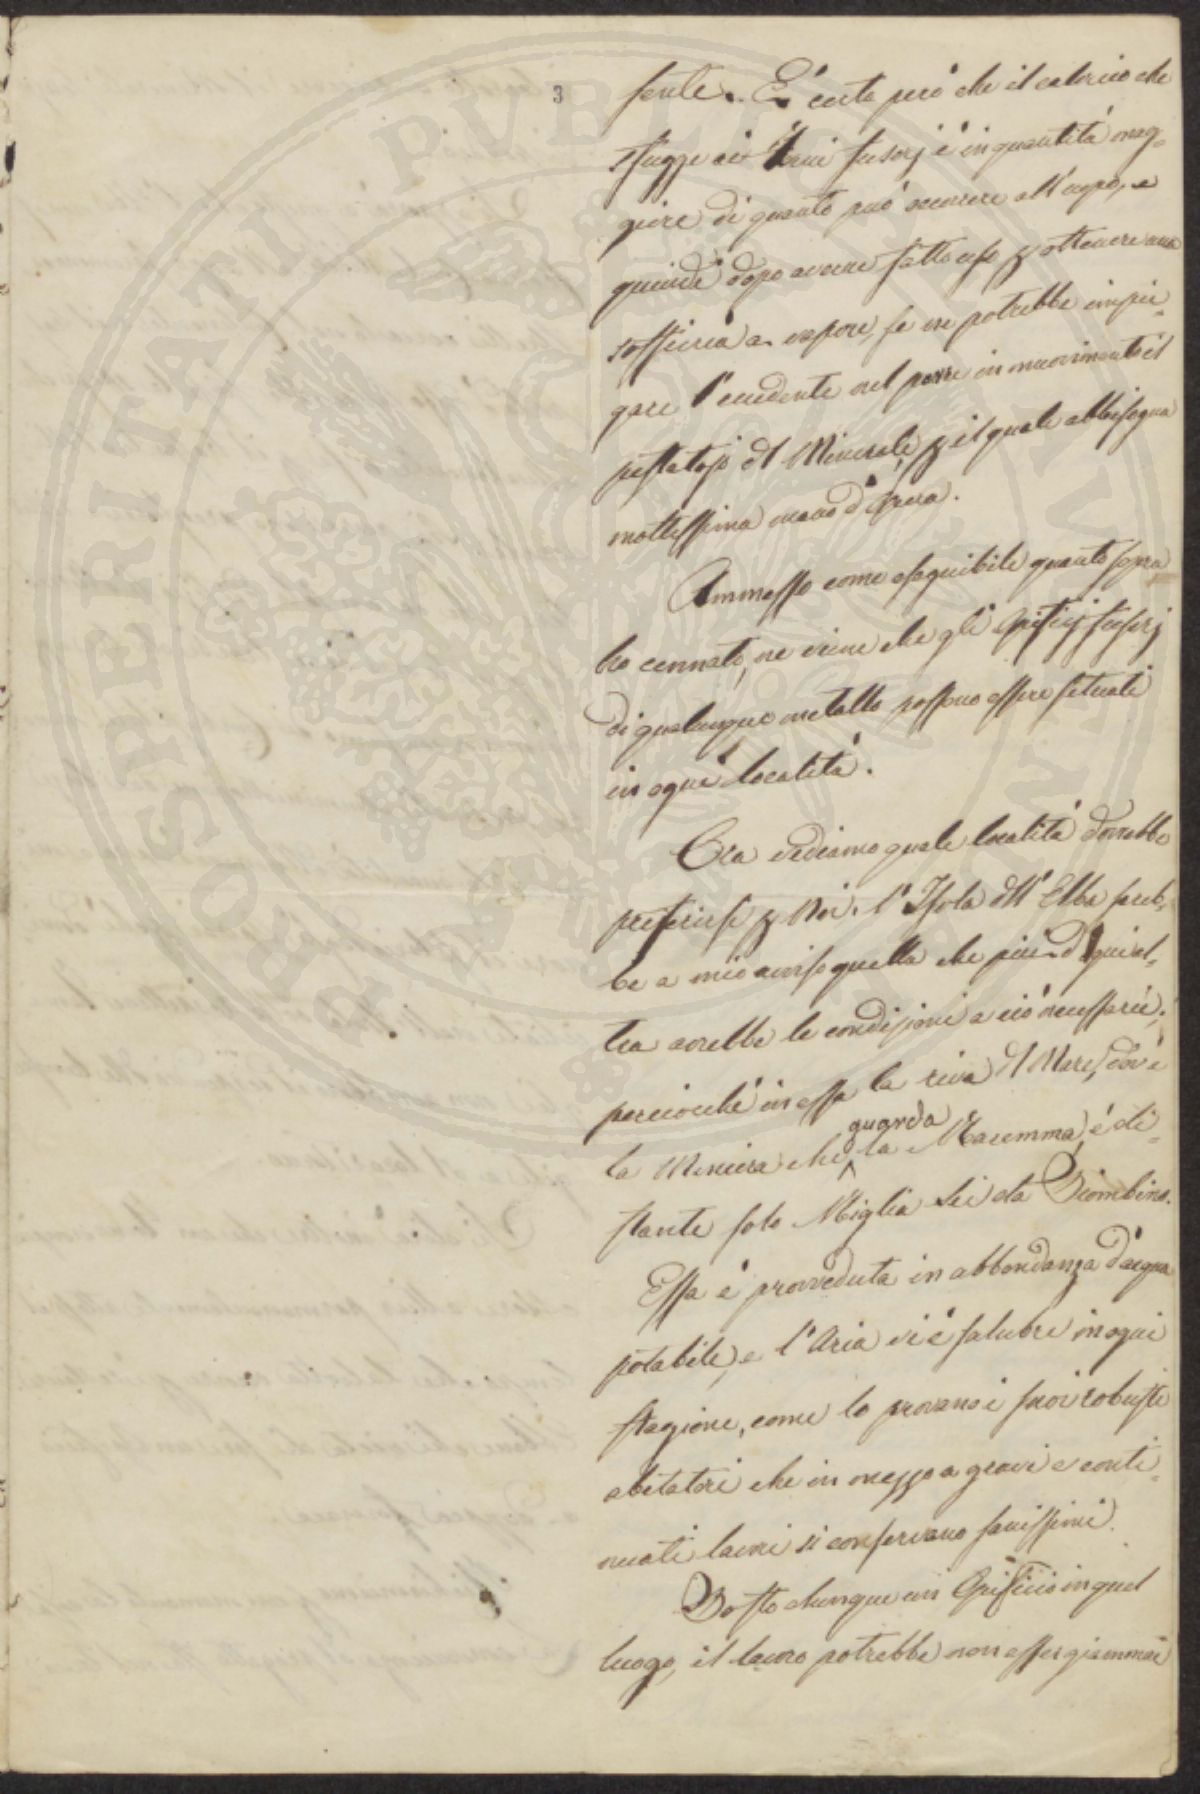 3
sente. E' certo però che il calorico che
sfugge ai Forni fusorj è in quantità mag=
giore di quanto può occorrere all'uopo, e
quindi dopo averne fatto uso p ottenere una
soffieria a vapore, se ne potrebbe impie=
gare l'eccedente nel porre in movimento il
pestatojo dl Minerale, p il quale abbisogna
moltissima mano d'Opera.
Ammesso come eseguibile quanto sopra
ho cennato, ne viene che gli Opificj fusorj
di qualunque metallo possono essere situati
in ogni località.
Ora vediamo quale località dovrebbe
preferirsi p Noi. l'Isola dll'Elba sareb=
be a mio avviso quella che più d'ogni al=
tra avrebbe le condizioni a ciò necessarie;
perciocchè in essa la riva dl Mare, dov'è
la Miniera che guarda la Maremma, è di=
stante solo Miglia sei da Piombino.
Essa è provveduta in abbondanza d'acqua
potabile, e l'Aria vi è salubre in ogni
stagione, come lo provano i suoi robusti
abitatori che in mezzo a gravi e conti=
nuati lavori si conservano sanissimi.
Posto dunque un Opificio in quel
luogo, il lavoro potrebbe non esser giammai
PROSPERITATI PVBLICAE